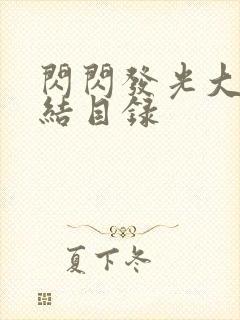 閃閃發光大
結目錄
夏下冬